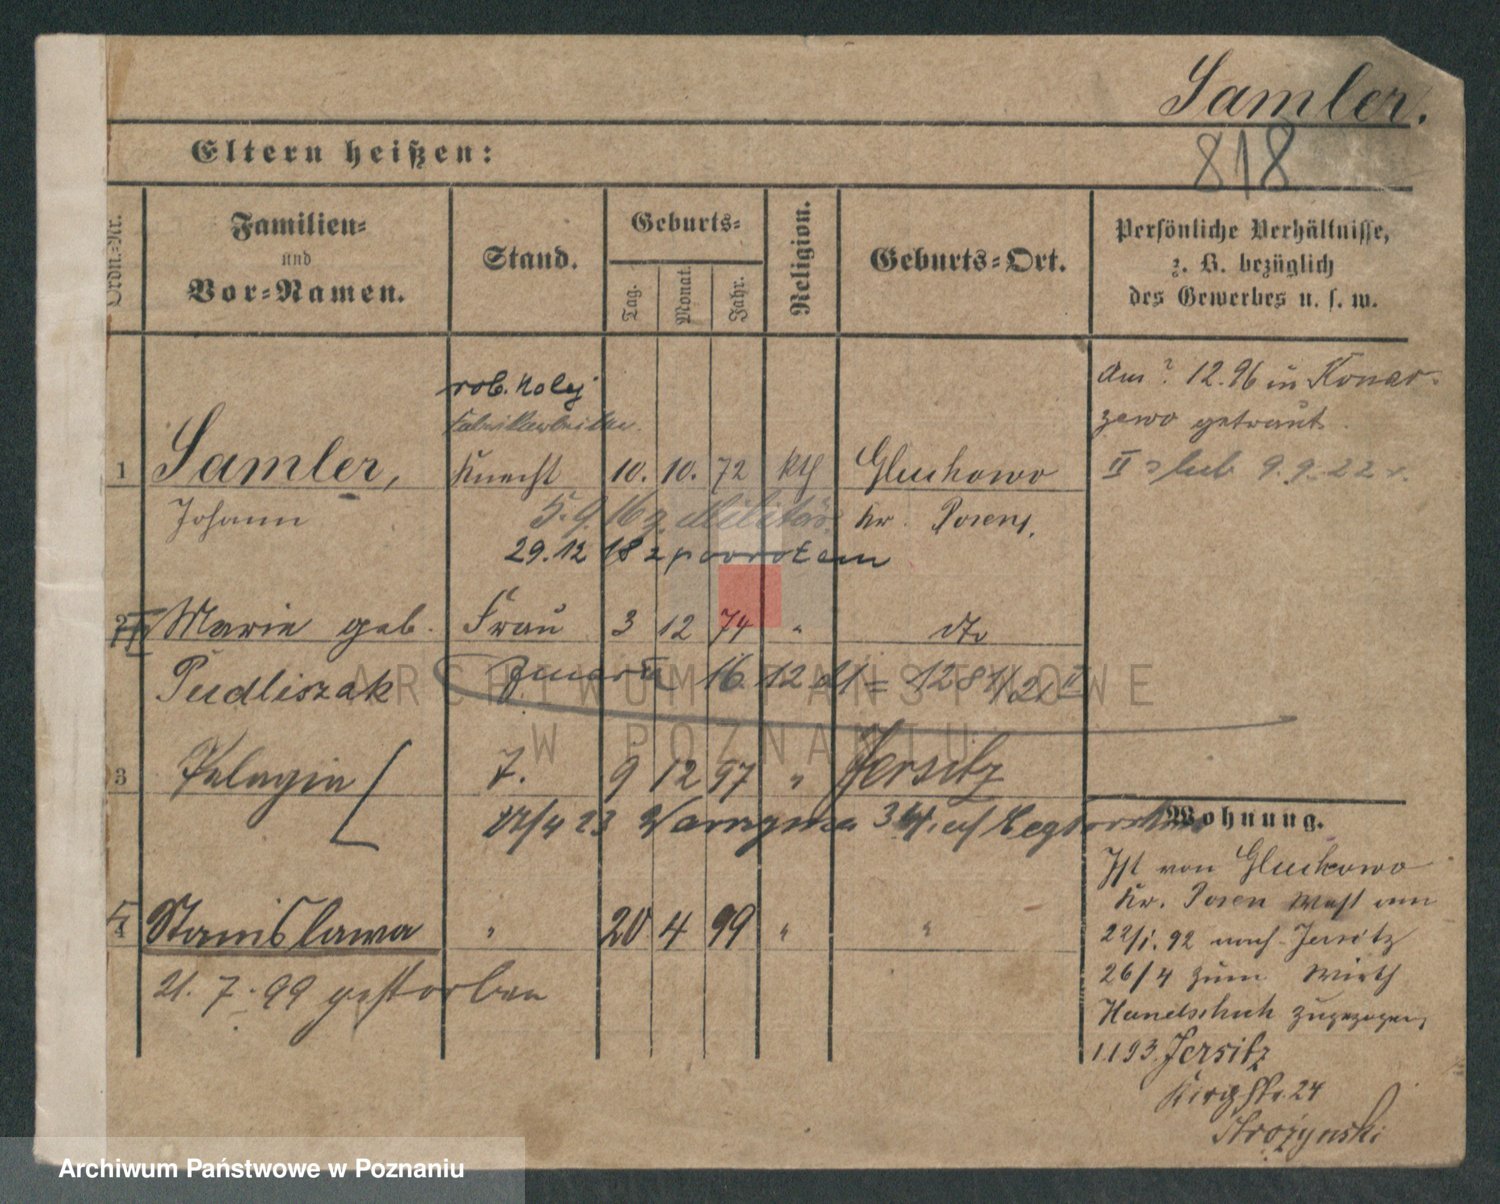 Samler.
818
Eltern heißen:
Ordn.-Nr.
Familien-
und
Vor-Namen.
Stand.
Geburts-
Tag.
Monat.
Jahr.
Religion.
Geburts-Ort.
Persönliche Verhältnisse,
z. B. bezüglich
des Gewerbes u. s. w.
rob. Kolej
Fabrikarbeiter.
1 Samler, Knecht 10. 10. 72 kth Gluchowo
Johann Kr. Posen
5. 9. 16 z. Militär
29.12 18 z powrotem
Am ? 12.96 in Konar-
zewo getraut.
II ślub 9.9.22 r.
2 Marie geb. Frau 3 12 74 " dto
Pudliszak
zmarła 16 12 21 = 1281/21
3 Pelagia T. 9 12 97 " Jersitz
12/4 23
4 Stanislawa " 20 4 99 " "
21. 7. 99 gestorben
Wohnung.
Ist von Gluchowo
Kr. Posen West am
22/1. 92 nach Jersitz
26/4 zum Wirth
Handschuh zugezogen
1.1 93. Jersitz
24
ARCHIWUM PAŃSTWOWE
W POZNANIU
Archiwum Państwowe w Poznaniu